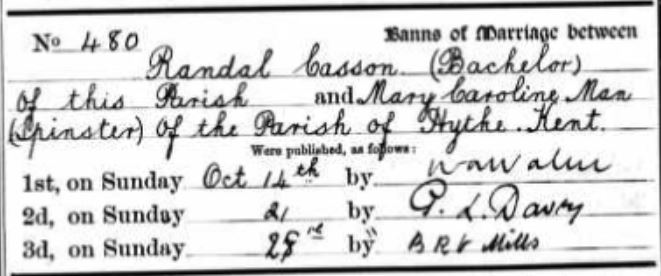 No 480 Banns of Marriage between
Randal Casson (Bachelor)
of this Parish and Mary Caroline Man
(Spinster) of the Parish of Hythe. Kent.
Were published, as follows:
1st, on Sunday Oct 14th by
2d, on Sunday 21 by G. L. Davry
3d, on Sunday 28 by B R V Mills